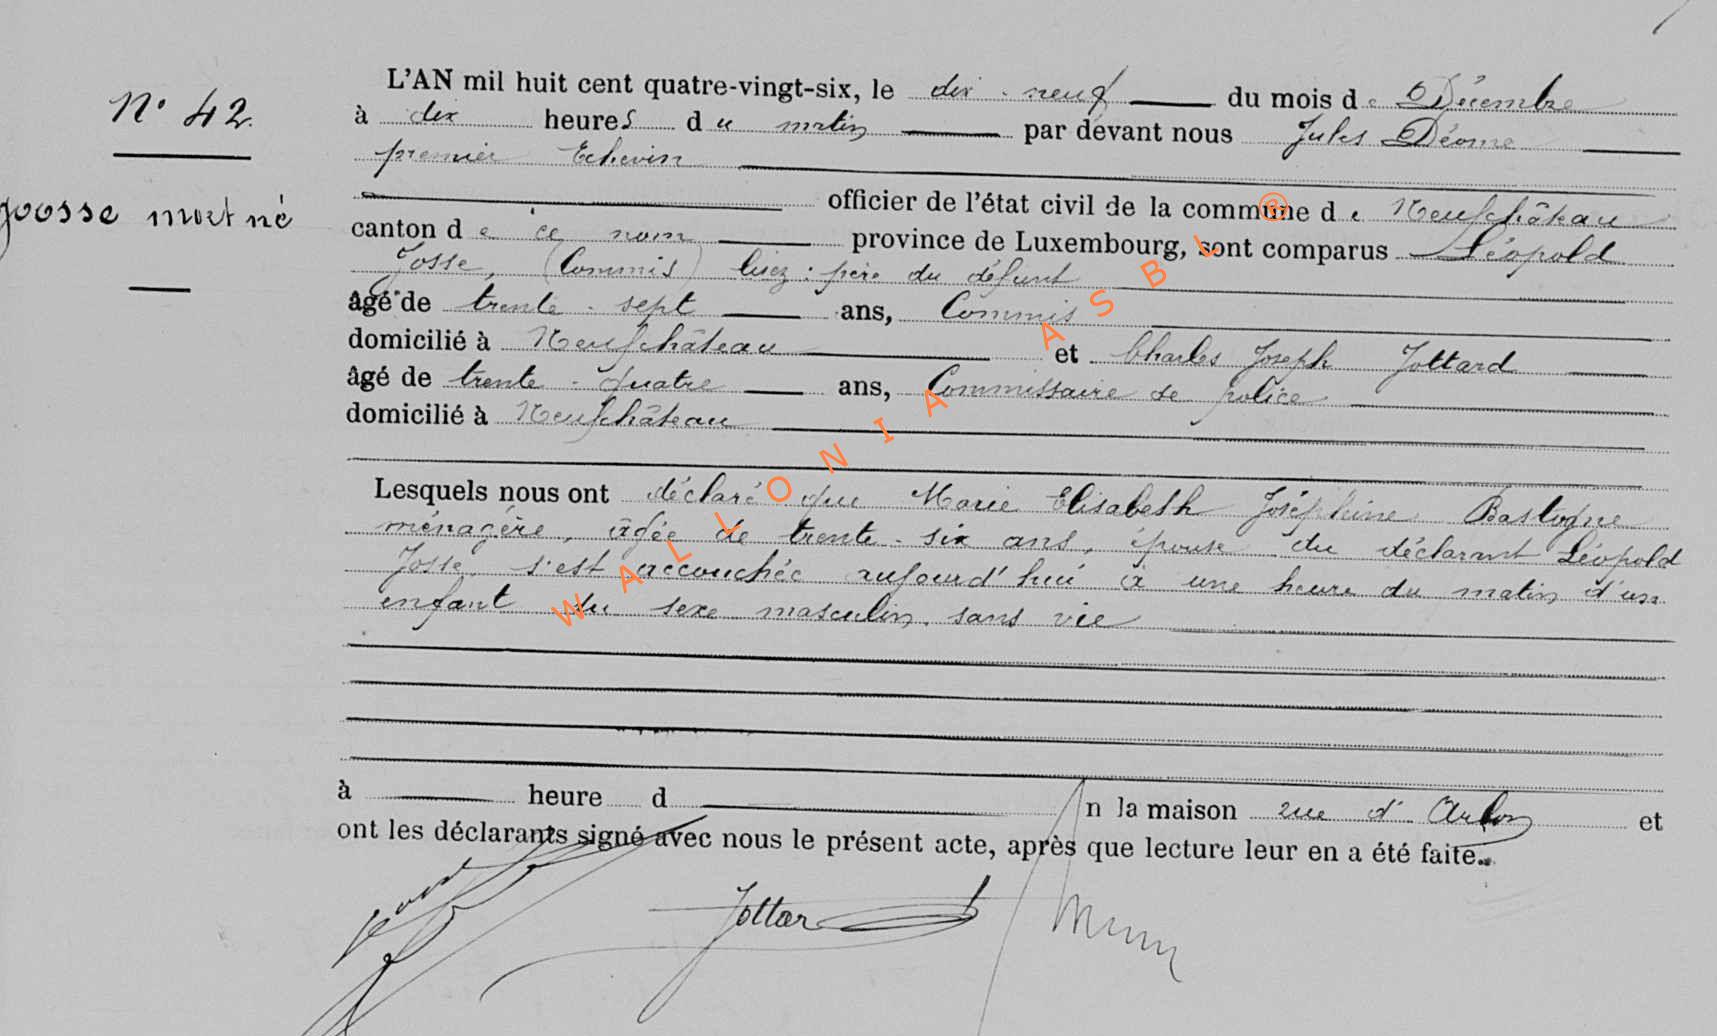 N° 42.
goosse mort né
L'AN mil huit cent quatre-vingt-six, le dix-neuf du mois de Décembre
à dix heures du matin par devant nous Jules Déome
premier Echevin
officier de l'état civil de la commune de Neufchâteau
canton de ce nom province de Luxembourg, sont comparus Léopold
Josse, (Commis) lisez: père du défunt
âgé de trente-sept ans, Commis
domicilié à Neufchâteau et Charles Joseph Jottard
âgé de trente-quatre ans, Commissaire de police
domicilié à Neufchâteau
Lesquels nous ont déclaré que Marie Elisabeth Joséphine Bastogne
ménagère, âgée de trente-six ans, épouse du déclarant Léopold
Josse, s'est accouchée aujourd'hui à une heure du matin d'un
enfant du sexe masculin, sans vie
à heure d n la maison rue d'Arlon et
ont les déclarants signé avec nous le présent acte, après que lecture leur en a été faite.
Jottard
WALLONIA ASBL ®